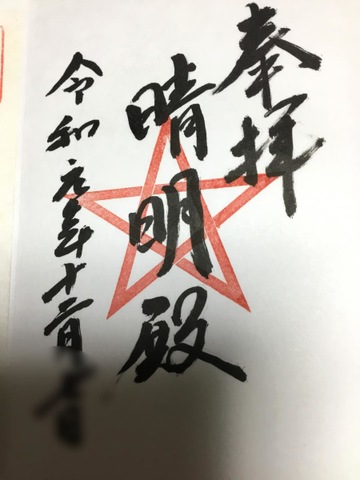 奉拝
晴明殿
令和元年十二月